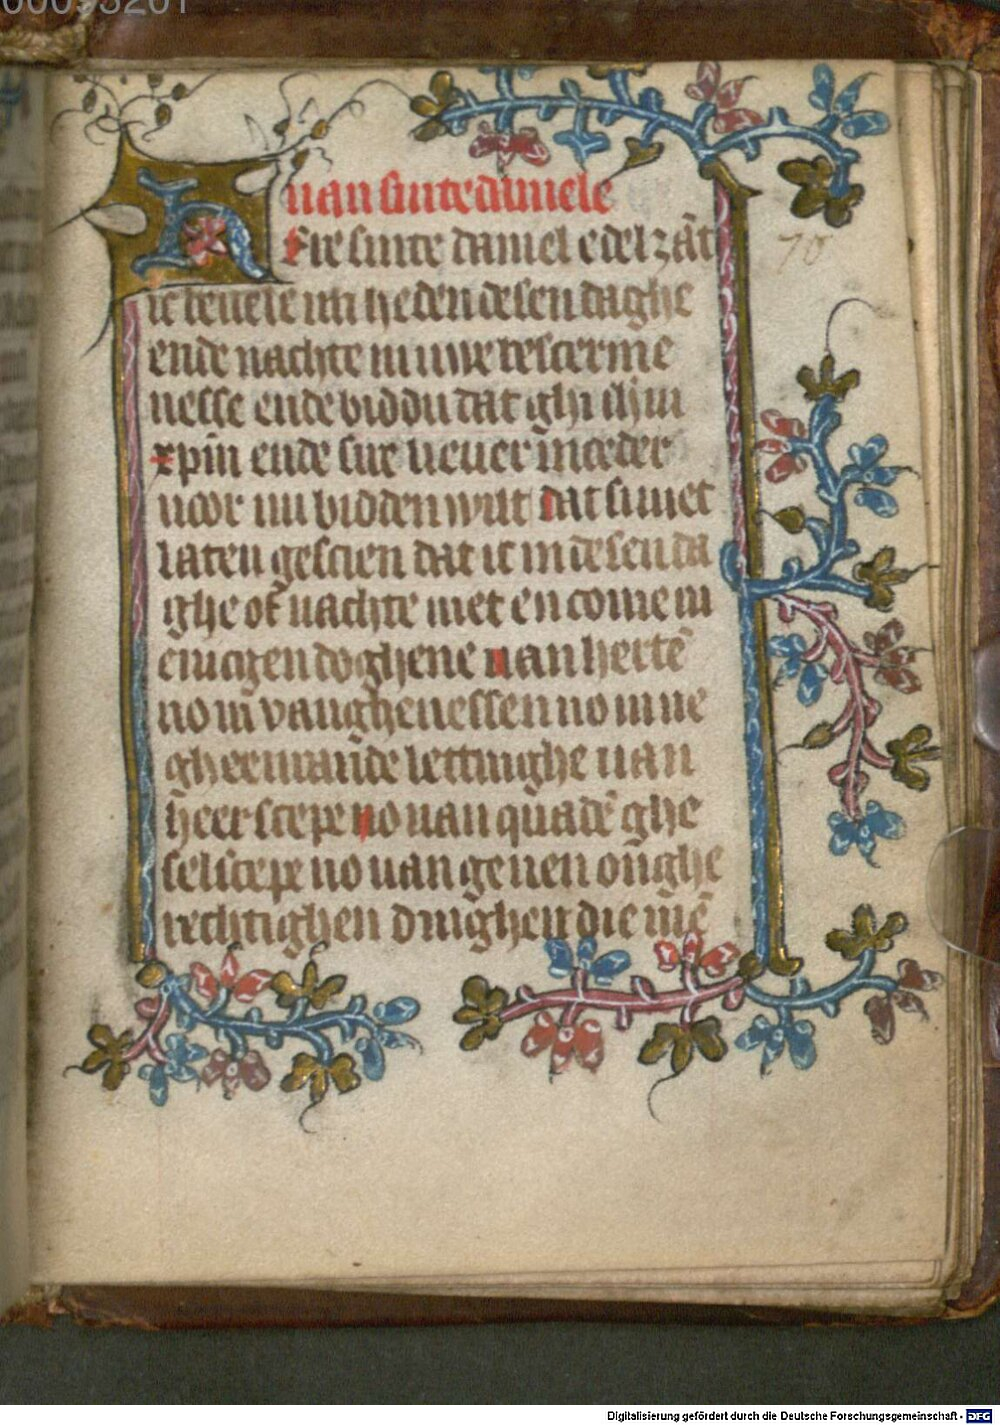 00095201
uan sinte daniele
Hre sinte daniel edel zāt
ic beuele mi heden desen daghe
ende nachte in uwe bescerme
nesse ende biddu dat ghi ihm
xpm̄ ende sire lieuer moeder
uoor mi bidden wilt dat si niet
laten gescien dat ic in desen da
ghe of nachte niet en come in
enigen doghene uan hertē
no in vanghenessen no in ne
gheenrande lettinghe uan
heerscepe no uan quadē ghe
selscepe no uan genen onghe
rechtighen dinghen die mē
70
Digitalisierung gefördert durch die Deutsche Forschungsgemeinschaft - DFG